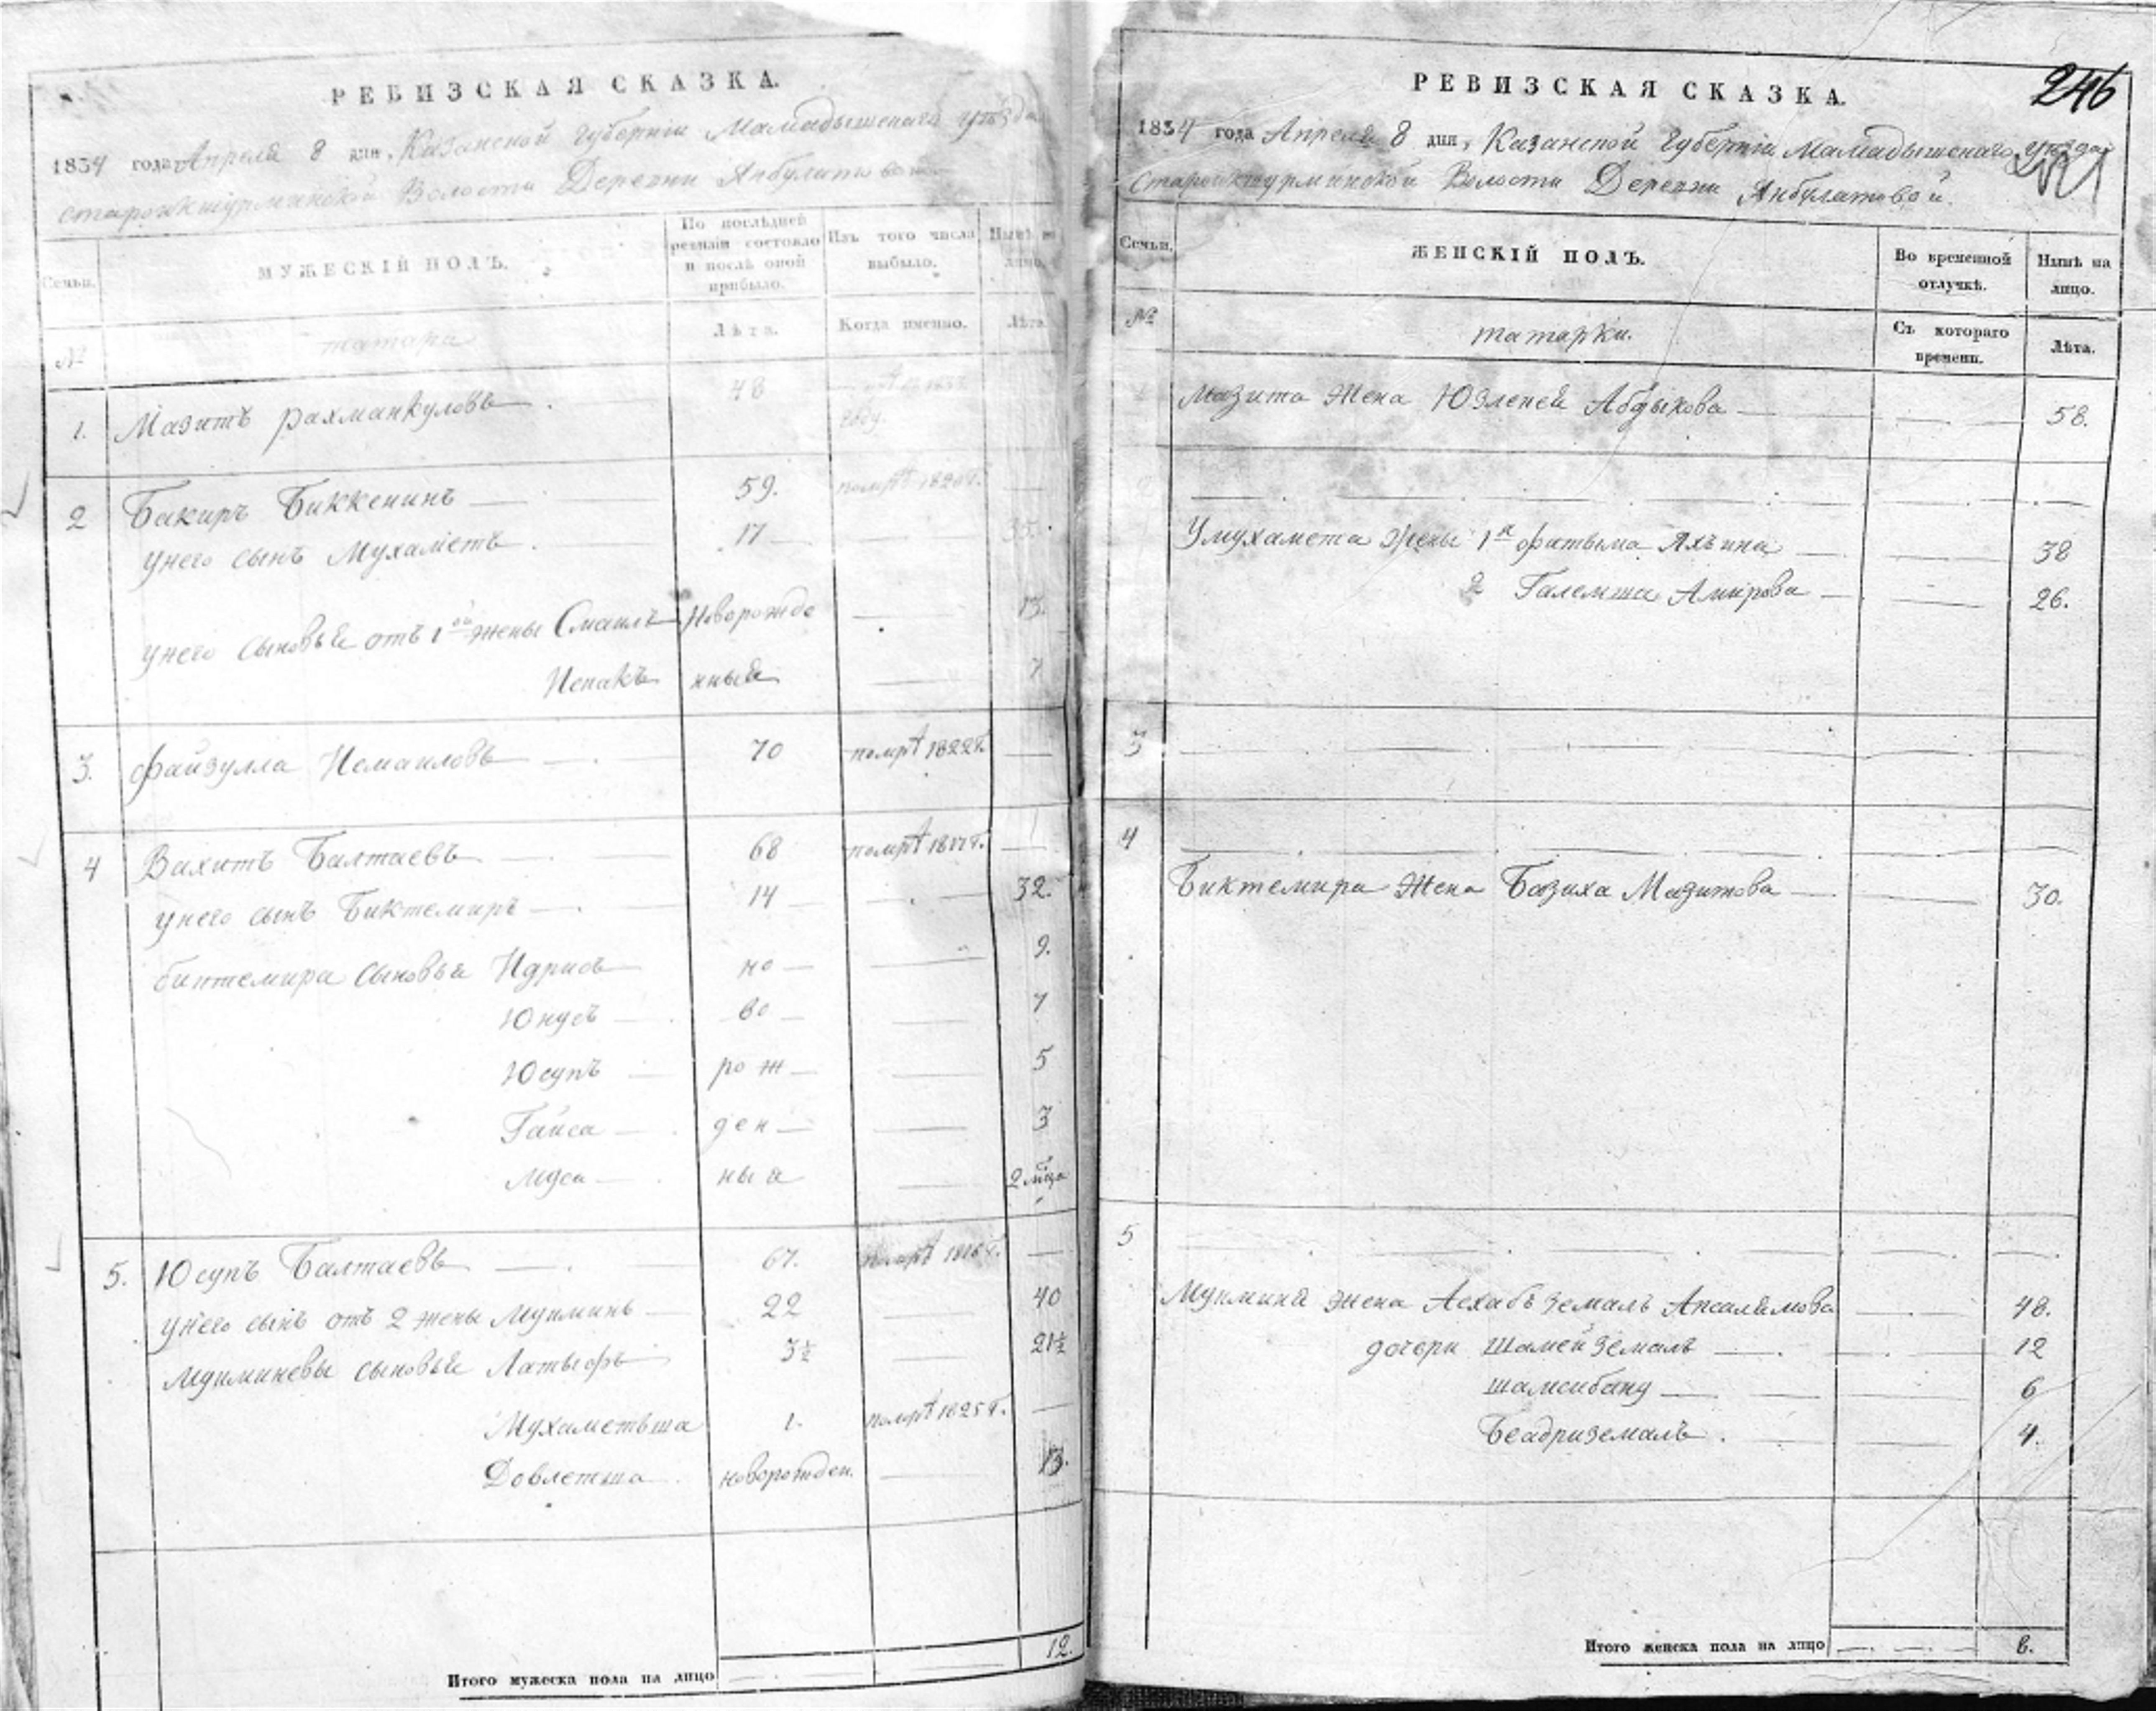 РЕВИЗСКАЯ СКАЗКА.
1834 года Апреля 8 дня, Казанской Губернiи Мамадышскаго уѣзда
Староикшурминской Волости Деревни Янбулатовой
Семьи.
МУЖЕСКІЙ ПОЛЪ.
По послѣдней ревизіи состояло и послѣ оной прибыло.
Изъ того числа выбыло.
Нынѣ на лицо.
№
татара
Лѣта.
Когда именно.
Лѣта.
1. Мазитъ Рахманкуловъ 48 году
2 Бакиръ Биккенинъ 59. помрѣ 1820 г.
у него сынъ Мухаметъ 17 35.
у него сыновья отъ 1ой жены Смаилъ Новорожде 13.
Исхакъ нныя 7
3. Файзулла Исмаиловъ 70 помрѣ 1822 г.
4 Вахитъ Балтаевъ 68 помрѣ
у него сынъ Биктемиръ 14 32.
биктемира сыновья Идрисъ но 9.
Юнусъ во 7
Юсупъ рож 5
Гайса ден 3
Муса ныя 2 мѣца
5. Юсупъ Балтаевъ 67. помрѣ 1816 г.
у него сынъ отъ 2 жены Мукминъ 22 40
Мукминевы сыновья Латыфъ 3½ 21½
Мухаметьша 1. помрѣ 1825 г.
Довлетша новорожден. 13.
Итого мужеска пола на лицо 12.
246
РЕВИЗСКАЯ СКАЗКА.
1834 года Апреля 8 дня, Казанской Губернiи Мамадышскаго уѣзда
Староикшурминской Волости Деревни Янбулатовой.
Семьи.
ЖЕНСКІЙ ПОЛЪ.
Во временной отлучкѣ.
Нынѣ на лицо.
№
татарки.
Съ котораго времени.
Лѣта.
Мазита жена Юзлепей Абдыкова 58.
У мухамета жены 1я Фатыма Яхьина 38
2 Галемша Амирова 26.
3
4
Биктемира жена Базиха Мазитова 30.
5
Мукмина жена Асхабъземалъ Апсалямова 48.
дочери Шамейземалъ 12
Шамсибану 6
Беадриземалъ 4.
Итого женска пола на лицо 8.